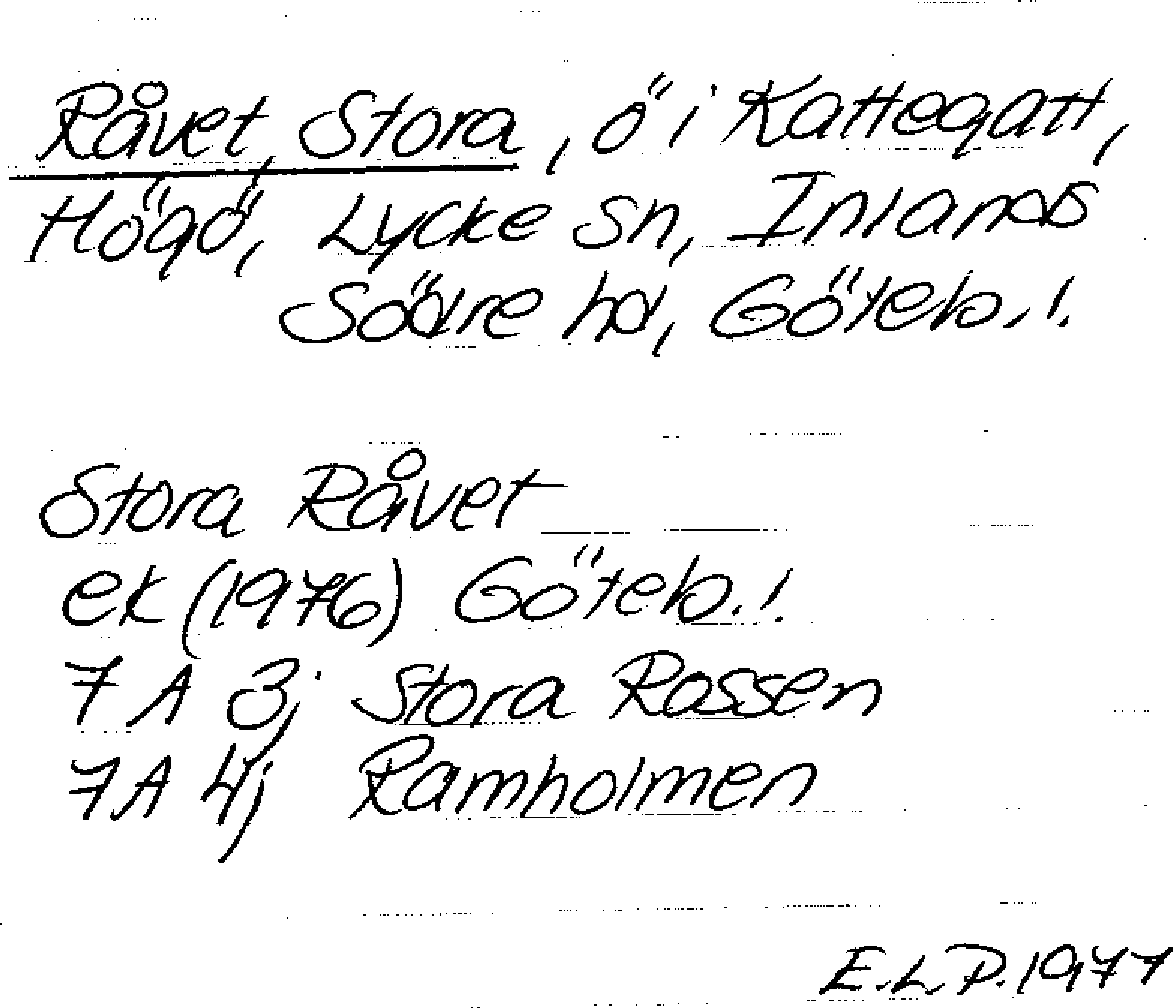 Råvet, Stora, ö i Kattegatt,
Högö, Lycke sn, Inlands
Södre hd, Göteb.l.
Stora Råvet
ek (1976) Göteb.l.
7 A 3j Stora Rossen
7A 4j Ramholmen
E.L.P. 1977